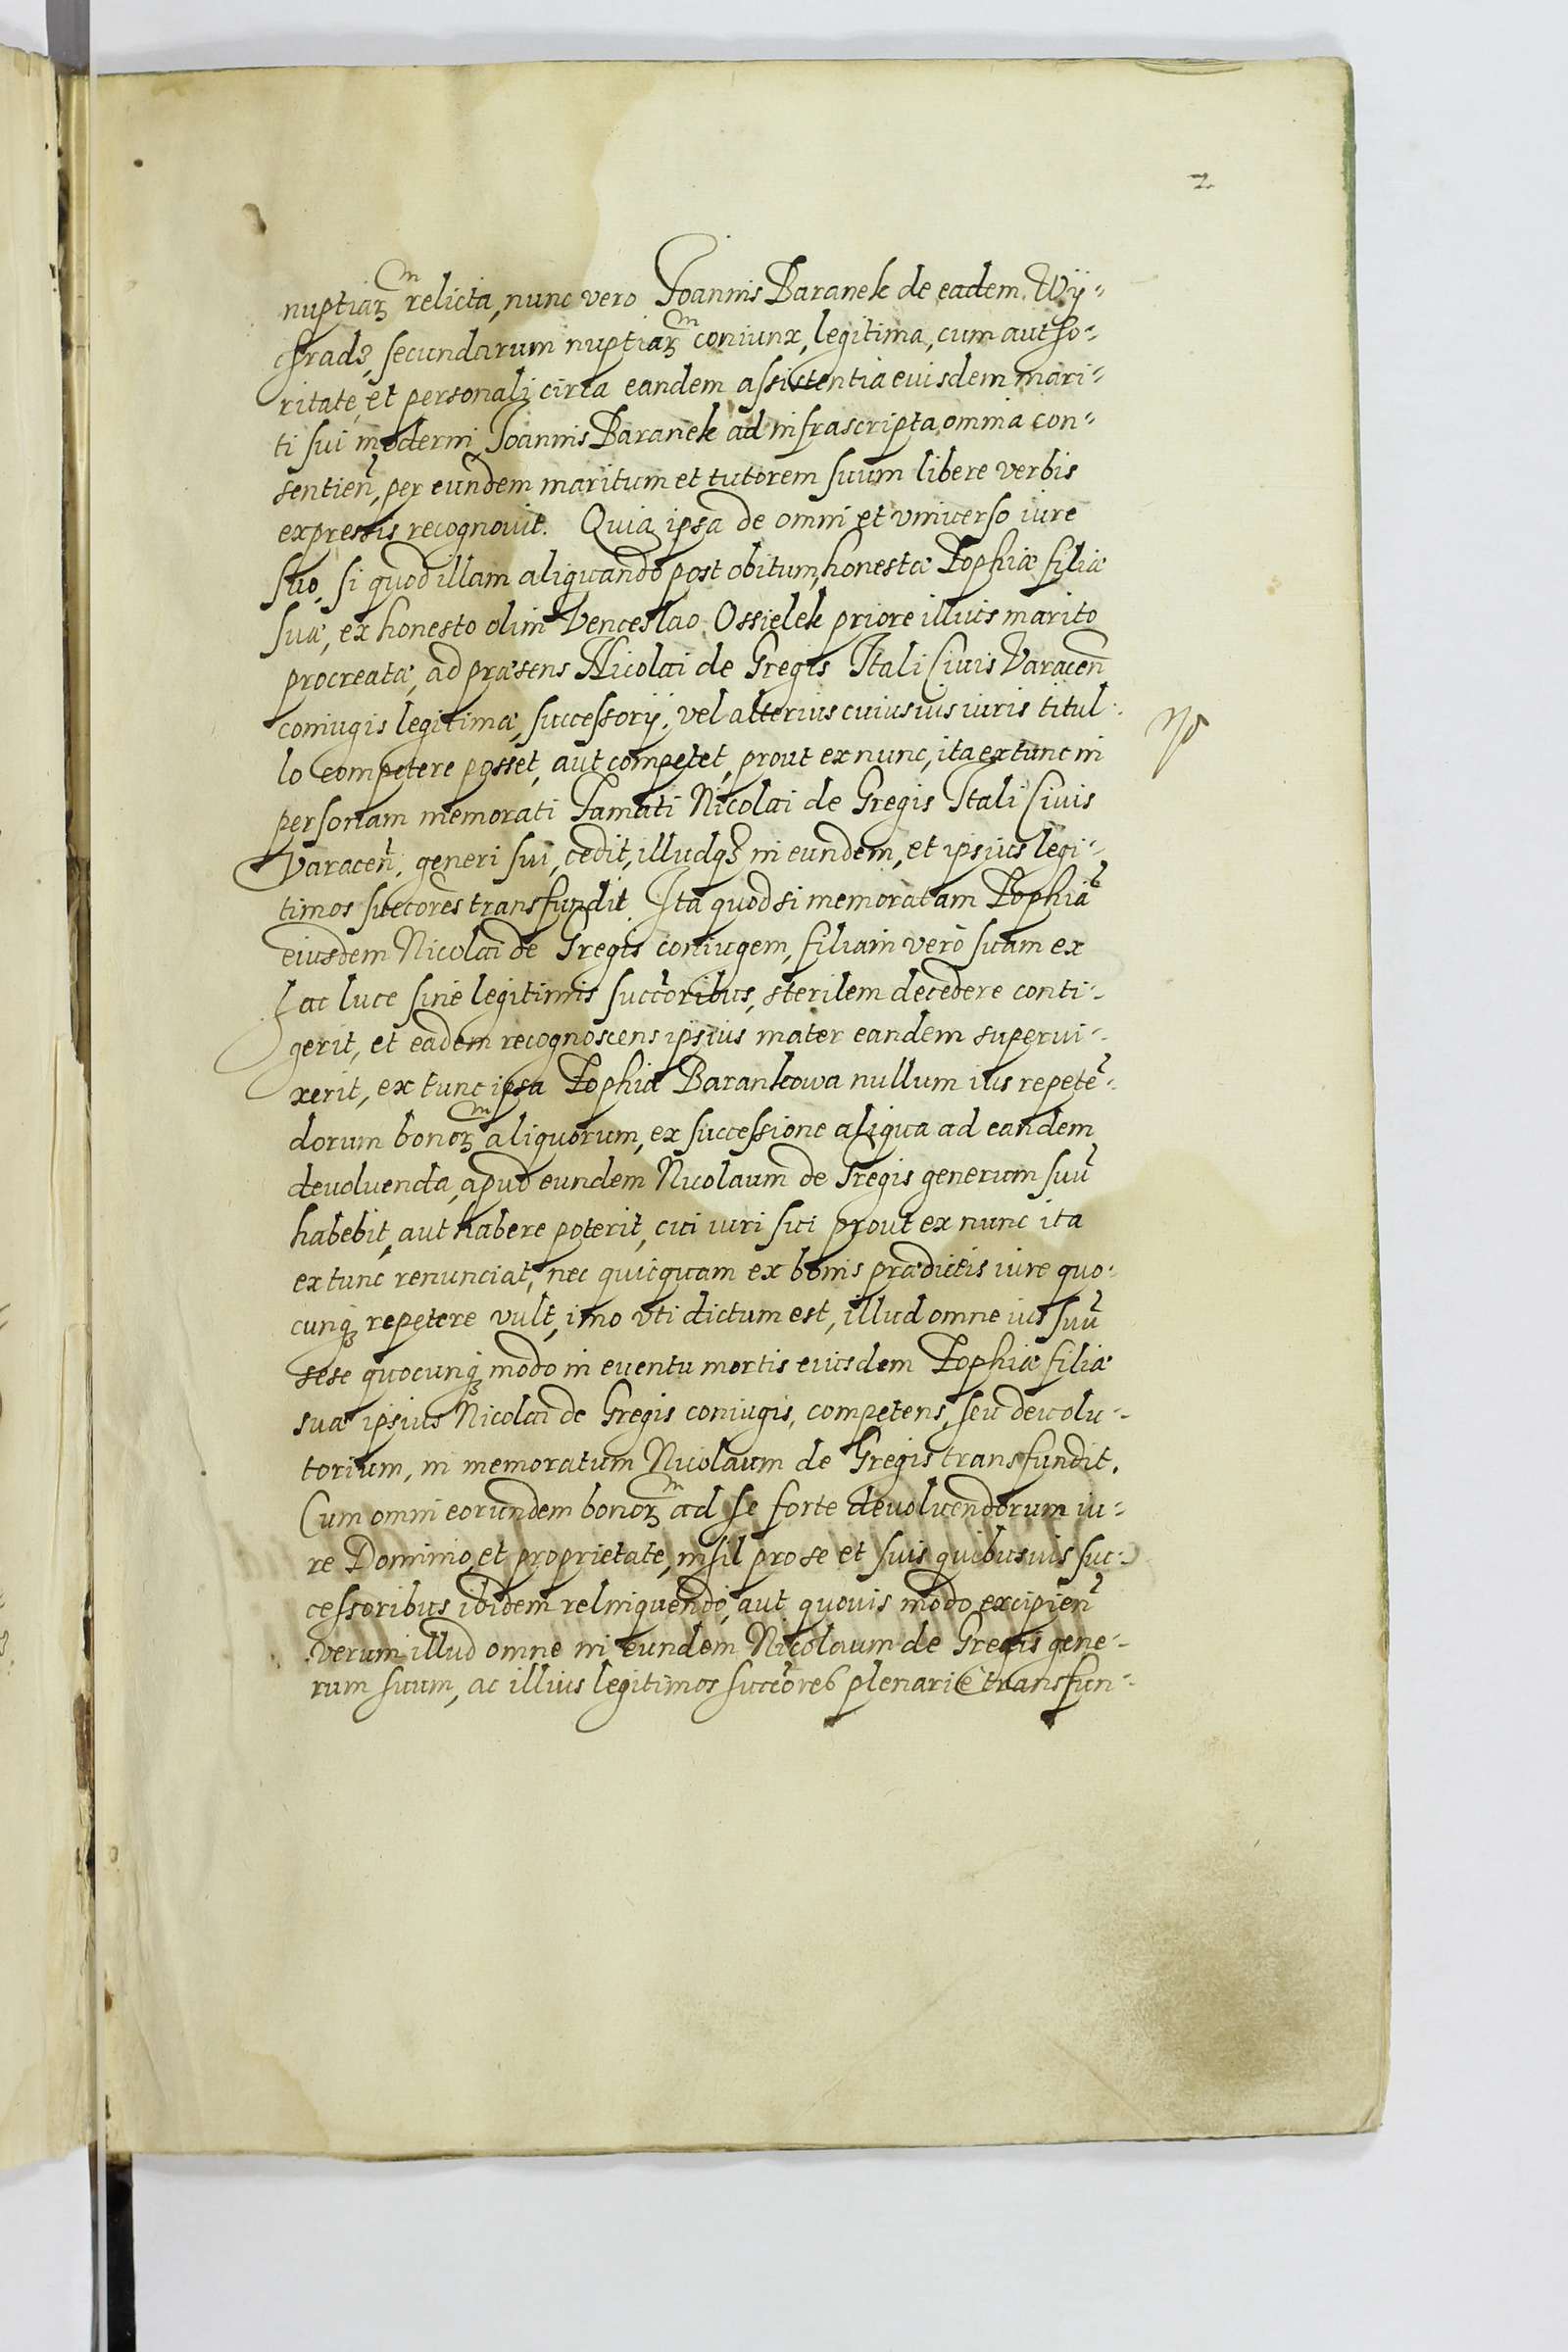 2
nuptiarum relicta, nunc vero Joannis Baranek de eadem Wÿ-
hrad?, secundarum nuptiarum coniunx, legitima, cum autho-
ritate, et personali circa eandem assistentia eiusdem mari-
ti sui moderni Joannis Baranek ad infrascripta omnia con-
sentien̄, per eundem maritum et tutorem suum libere verbis
expressis recognovit. Quia ipsa de omni et vniverso iure
suo, si quod illam aliquando post obitum, honestæ Zophiæ filiæ
suæ, ex honesto olim Venceslao Ossielek priore illius marito
procreatæ, ad præsens Nicolai de Gregis Itali Civis Varacen̄
coniugis legitimæ, successorÿ, vel alterius cuiusuis iuris titul-
lo competere posset, aut competet, prout ex nunc, ita ex tunc in
personam memorati Famati Nicolai de Gregis Itali Civis
Varacen̄, generi sui, cedit, illudqȝ in eundem, et ipsius legi-
timos succores transfundit. Ita quod si memoratam Zophiā
eiusdem Nicolai de Gregis coniugem, filiam verò suam ex
hac luce sine legitimis succoribus, sterilem decedere conti-
gerit, et eadem recognoscens ipsius mater eandem supervi-
xerit, ex tunc ipsa Zophia Barankowa nullum ius repetē-
dorum bonorum aliquorum, ex successione aliqua ad eandem
devoluenda, apud eundem Nicolaum de Gregis generum suū
habebit, aut habere poterit, cui iuri sui prout ex nunc ita
ex tunc renunciat, nec quicquam ex bonis prædictis iure quo-
cunqȝ repetere vult, imo vti dictum est, illud omne ius suū
sese quocunqȝ modo in eventu mortis eiusdem Zophiæ filiæ
suæ ipsius Nicolai de Gregis coniugis, competens, seu devolu-
torium, in memoratum Nicolaum de Gregis transfundit.
Cum omni eorundem bonorum ad se forte devoluendorum iu-
re Dominio, et proprietate, nihil pro se et suis quibusuis suc-
cessoribus ibidem relinquendo, aut quovis modo excipien̄
verum illud omne in eundem Nicolaum de Gregis gene-
rum suum, ac illius legitimos succores plenariè transfun-